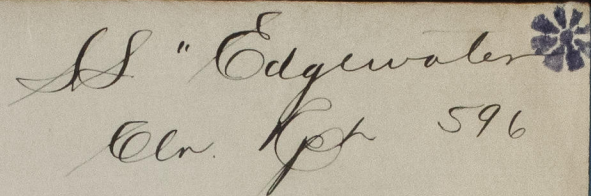 SS "Edgewater
Cln. Rpt 596